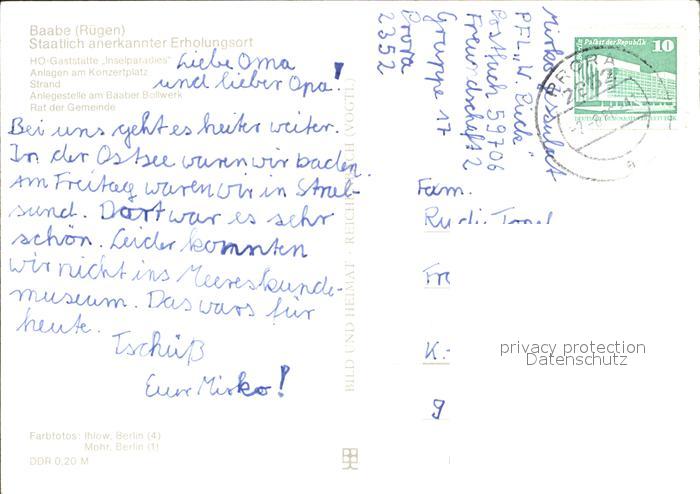 Baabe (Rügen)
Staatlich anerkannter Erholungsort
HO-Gaststätte „Inselparadies"
Anlagen am Konzertplatz
Strand
Anlegestelle am Baaber Bollwerk
Rat der Gemeinde
Liebe Oma
und lieber Opa!
Bei uns geht es heiter weiter.
In der Ostsee waren wir baden.
Am Freitag waren wir in Stral-
sund. Dort war es sehr
schön. Leider konnten
wir nicht ins Meereskunde-
museum. Das wars für
heute.
Tschüß
Eure Mirko!
Farbfotos: Ihlow, Berlin (4)
Mohr, Berlin (1)
DDR 0,20 M
BILD UND HEIMAT REICHENBACH (VOGTL)
Mirko
PFL „W. Pieck"
Postfach 59706
Freundschaft 2
Gruppe 17
Prora
2352
Palast der Republik
10
DEUTSCHE DEMOKRATISCHE REPUBLIK
PRORA
Fam.
Rudi
Fr
K.
9
privacy protection
Datenschutz